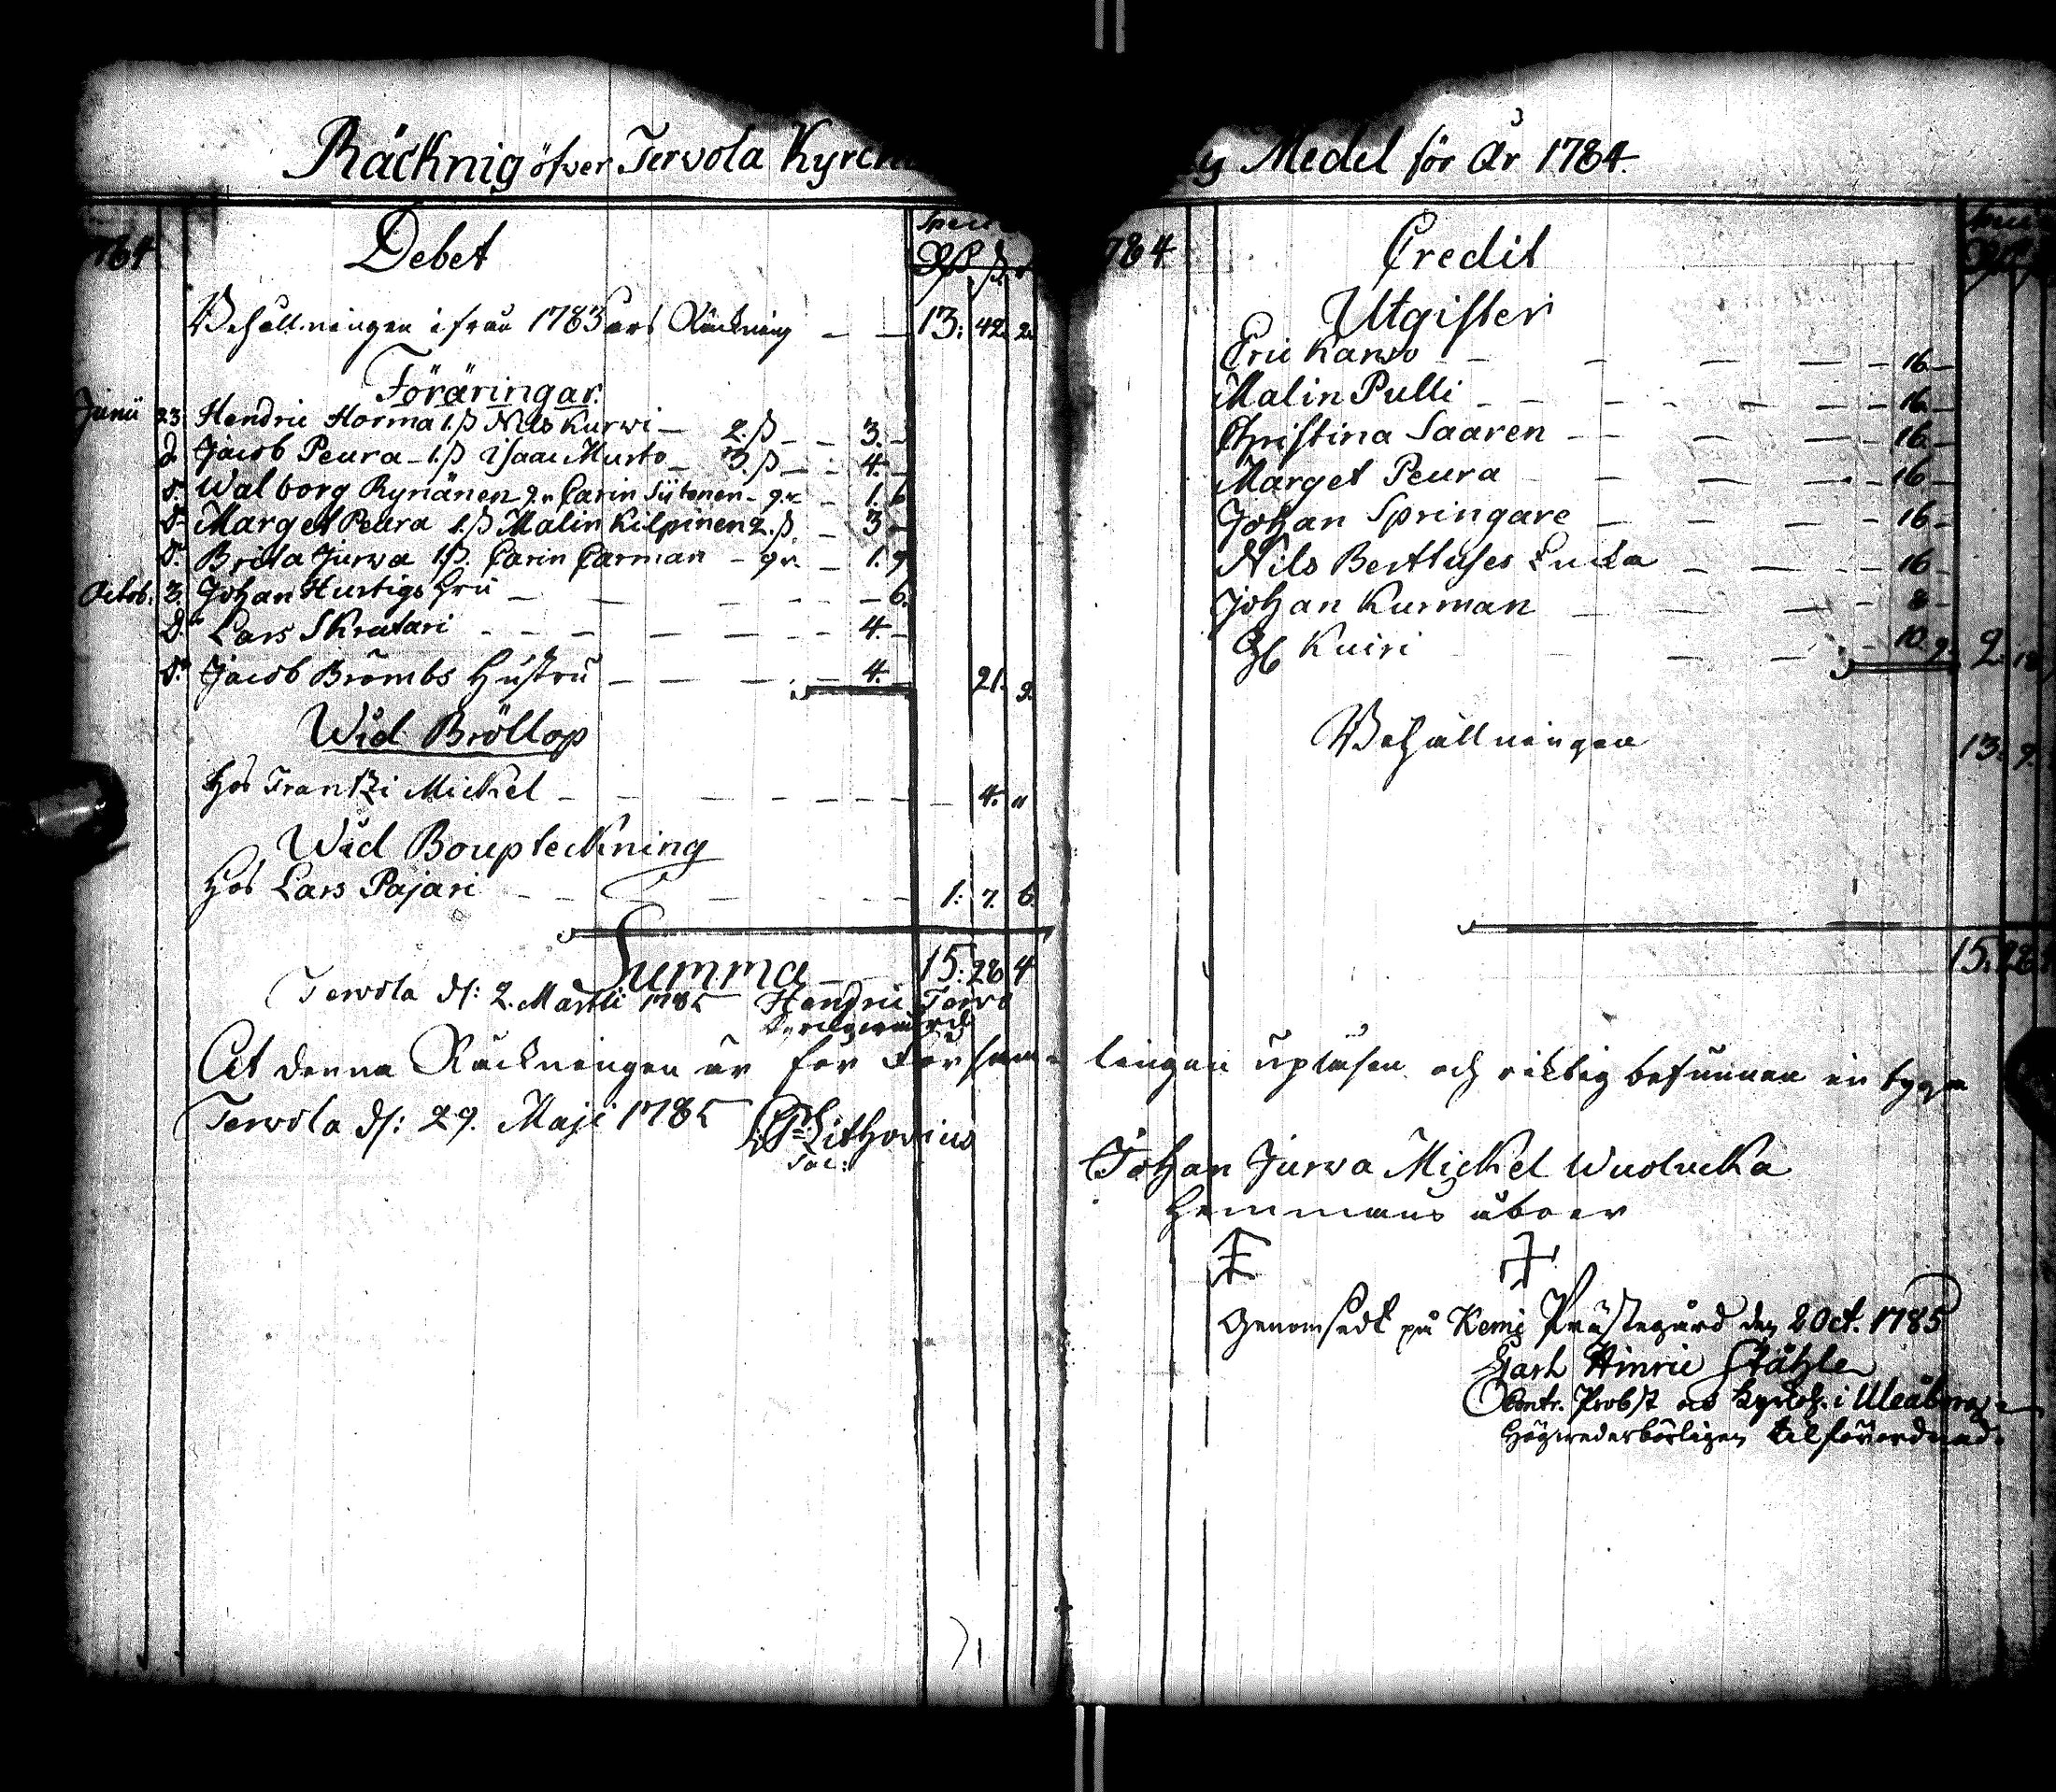 Räcknig öfver Tervola Kyrck
Debet
Behållningen ifrån 1783 års Räckning — — 13: 42. 2.
Föräringar.
Junii 23. Hendric Horma 1.ß Nils Kurwi — 2.ß — — 3. —
d. Jacob Peura — 1.ß Isaac Musto — 3.ß — — 4. —
d:o Walborg Rynänen 9.r Carin Siitonen — 9.r — 1. 6
d:o Marget Peura 1.ß Malin Kilpinen 2.ß — 3 —
d:o Brita Jurwa 1.ß. Carin Carman — 9 r. — 1. 9
Octob. 3. Johan Hurtigs hru — — — — 6.
d:o Lars Skratari — — — — 4 —
d:o Jacob Brömbs Hustru — — — — 4. — 21. 3.
Wid Bröllop
hos Frantzi Mickel — — — — 4. "
Wid Boupteckning
Hos Lars Pajari — — — — 1: 7. 6.
Summa — 15: 28 4
Tervola d: 2. Martii 1785 Hendric Tervo
At denna Räckningen är för Församlingen upläsen och riktig befunnen in tyga
Tervola d: 29. Maji 1785 Lithovius
Sac:
y Medel för År 1784.
784
Credit
Utgifter
Eric Karvo — — — — 16 —
Malin Pulli — — — — 16. —
Christina Saaren — — — — 16. —
Marget Peura — — — 16 —
Johan Springare — — — — 16 —
Nils Bertluses Encka — — — 16 —
Johan Kurman — — — — 8 —
Kuiri — — — 10. 9. 2. 18
Behållningen 13. 9.
15. 28.
Johan Jurva Mickel Wuolucka
Hemmans åboer
Genomsedt på Kemi Prästegård den 2 Oct. 1785
Hinric Ståhle
Contr. Probst och Kyrckoh. i Uleåborg
Högvederbörligen tilförordnad.